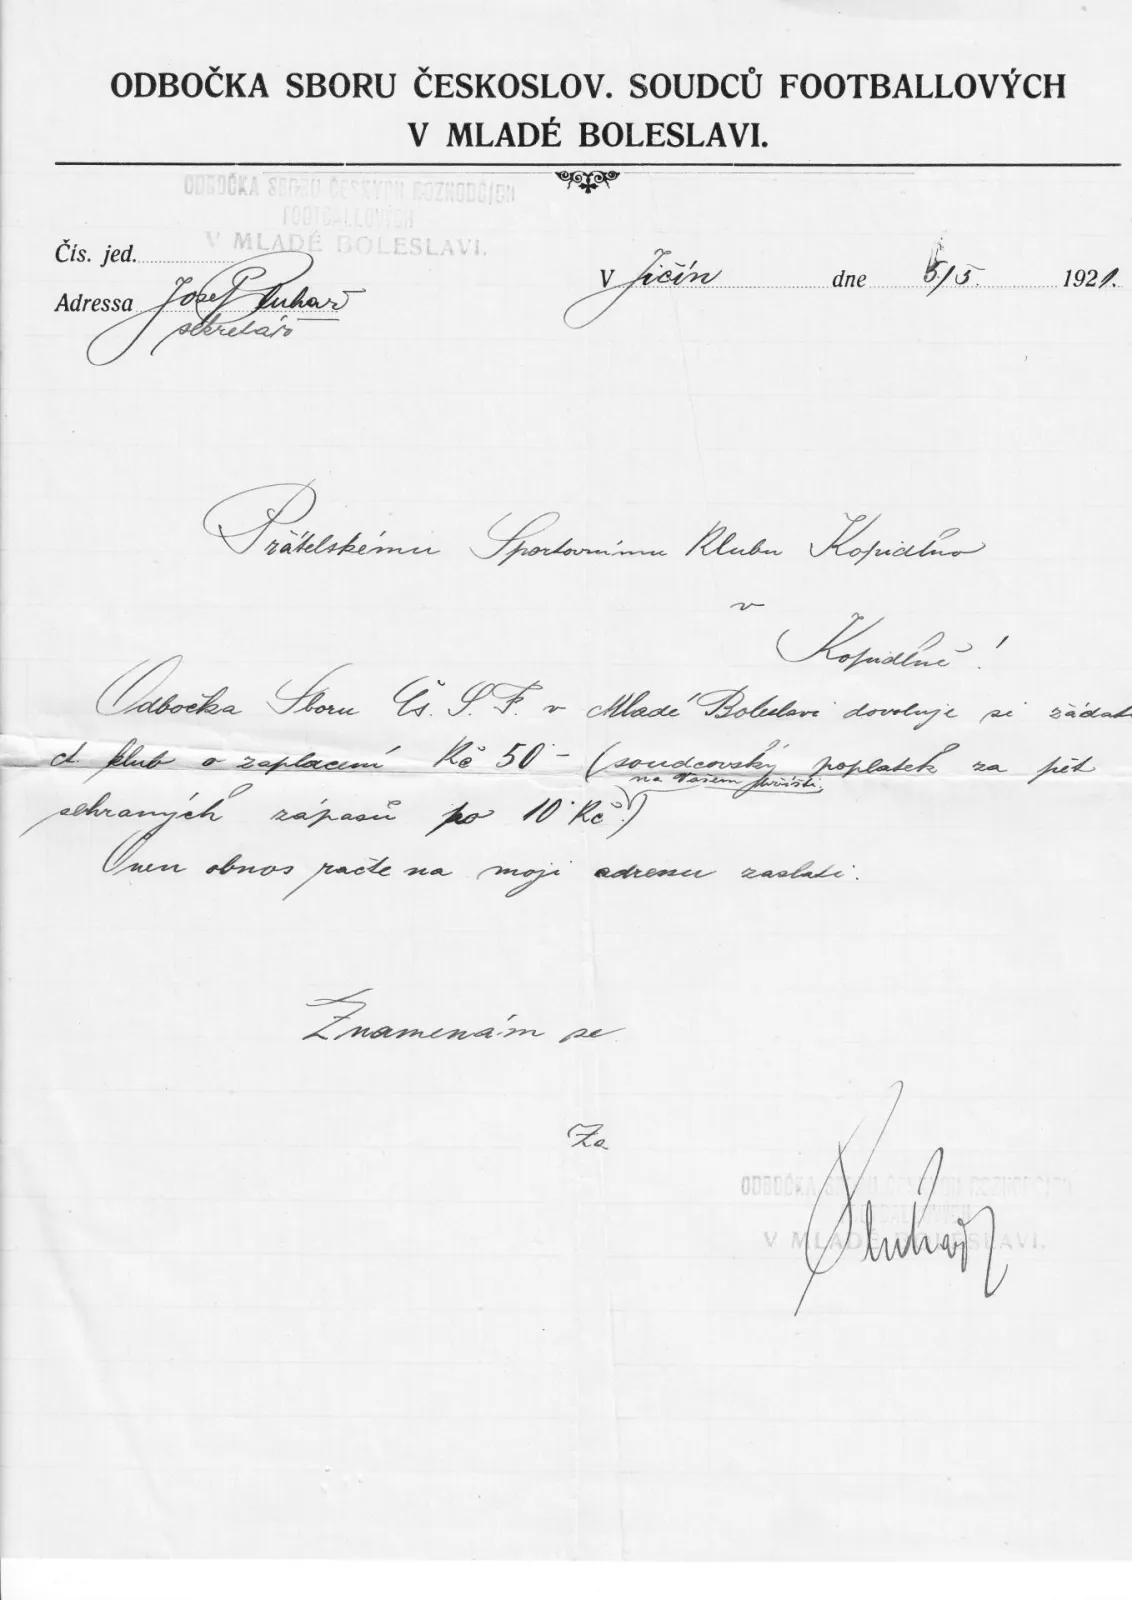 ODBOČKA SBORU ČESKOSLOV. SOUDCŮ FOOTBALLOVÝCH
V MLADÉ BOLESLAVI.
ODBOČKA SBORU ČESKÝCH ROZHODČÍCH
FOOTBALLOVÝCH
V MLADÉ BOLESLAVI.
Čís. jed.
V Jičín dne 5/5. 1921.
Adressa Josef Pluhař
sekretář
Přátelskému Sportovnímu Klubu Kopidlno
v
Kopidlně!
Odbočka Sboru Čs. S. F. v Mladé Boleslavi dovoluje si žádati
ct. klub o zaplacení Kč 50·- (soudcovský poplatek za pět
na Vašem hřišti
sehraných zápasů po 10 Kč.)
Onen obnos račte na moji adresu zaslati.
Znamenám se
Za
ODBOČKA SBORU ČESKÝCH ROZHODČÍCH
FOOTBALLOVÝCH
V MLADÉ BOLESLAVI.
Pluhař